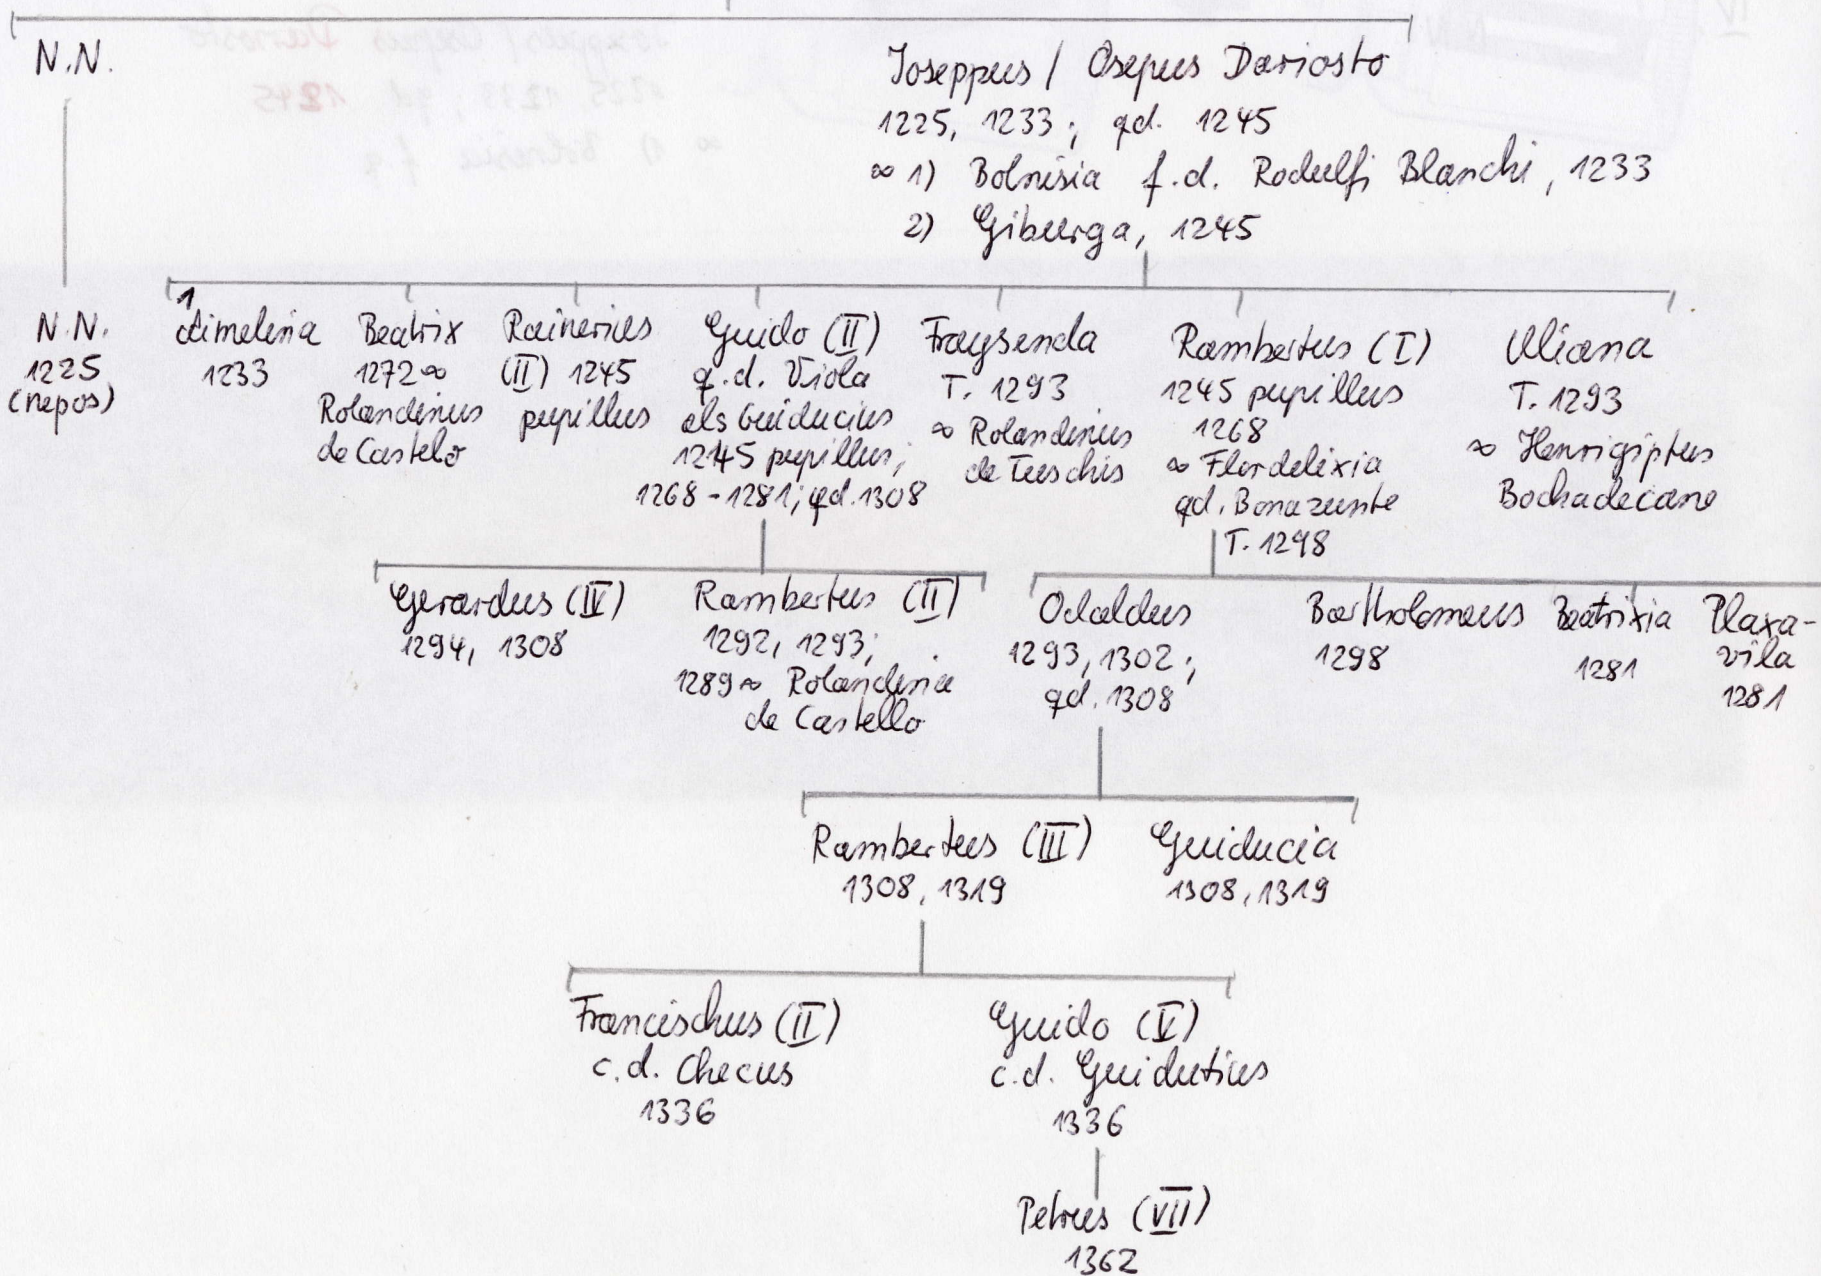 N.N.
Ioseppus / Osepus Dariosto
1225, 1233; qd. 1245
∞ 1) Bolnisia f.d. Rodulfi Blanchi, 1233
2) Giburga, 1245
N.N.
1225
(nepos)
1
Aimelina
1233
Beatrix
1272 ∞
Rolandinus
de Castelo
Rainerius
(II) 1245
pupillus
Guido (II)
q.d. Viola
als Guiducius
1245 pupillus;
1268 - 1281; qd. 1308
Fraysenda
T. 1293
∞ Rolandinus
de Tuschis
Rambertus (I)
1245 pupillus
1268
∞ Flordelixia
qd. Bonazunte
T. 1298
Uliana
T. 1293
∞ Henrigiptus
Bochadecane
Gerardus (IV)
1294, 1308
Rambertus (II)
1292, 1293;
1289 ∞ Rolandina
de Castello
Odaldus
1293, 1302;
qd. 1308
Bartholomeus
1298
Beatrixia
1281
Plaxa-
vila
1281
Rambertus (III)
1308, 1319
Guiducia
1308, 1319
Francischus (II)
c.d. Checus
1336
Guido (V)
c.d. Guidutius
1336
Petrus (VII)
1362